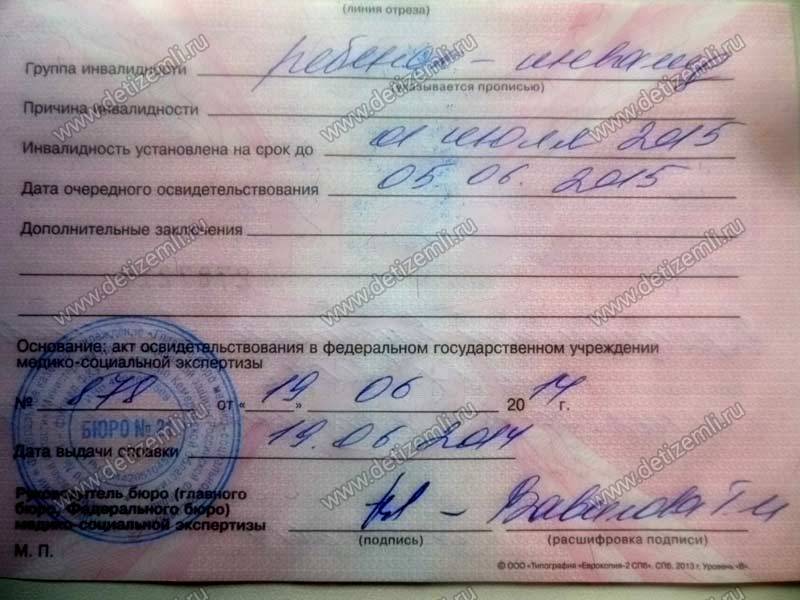 (линия отреза)
Группа инвалидности ребенок - инвалид
(указывается прописью)
Причина инвалидности
Инвалидность установлена на срок до 01 июля 2015
Дата очередного освидетельствования 05.06.2015
Дополнительные заключения
Основание: акт освидетельствования в федеральном государственном учреждении
медико-социальной экспертизы
№ 878 от «19» 06 2014 г.
БЮРО № 21
Дата выдачи справки 19.06 2014
Руководитель бюро (главного
бюро, Федерального бюро)
медико-социальной экспертизы
(подпись) (расшифровка подписи)
М. П.
© ООО «Типография «Еврокопия-2 СПб». СПб. 2013 г. Уровень «В».
www.detizemli.ru